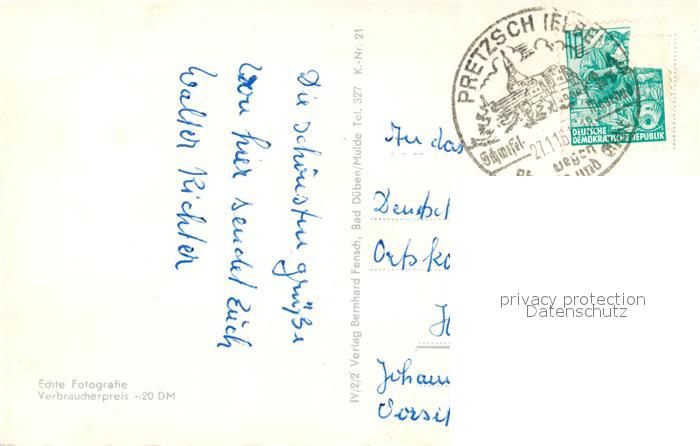 Die schönsten Grüße
von hier sendet Euch
Walter Richter
Echte Fotografie
Verbraucherpreis -.20 DM
IV/2/2 Verlag Bernhard Fensch, Bad Düben/Mulde Tel. 327 K.-Nr. 21
PRETZSCH (ELBE)
Schwefel-
27.1.
gegen
und
DEUTSCHE
DEMOKRATISCHE REPUBLIK
5
An das
Deutsch
Ortsko
H
Johann
Vorsit
privacy protection
Datenschutz